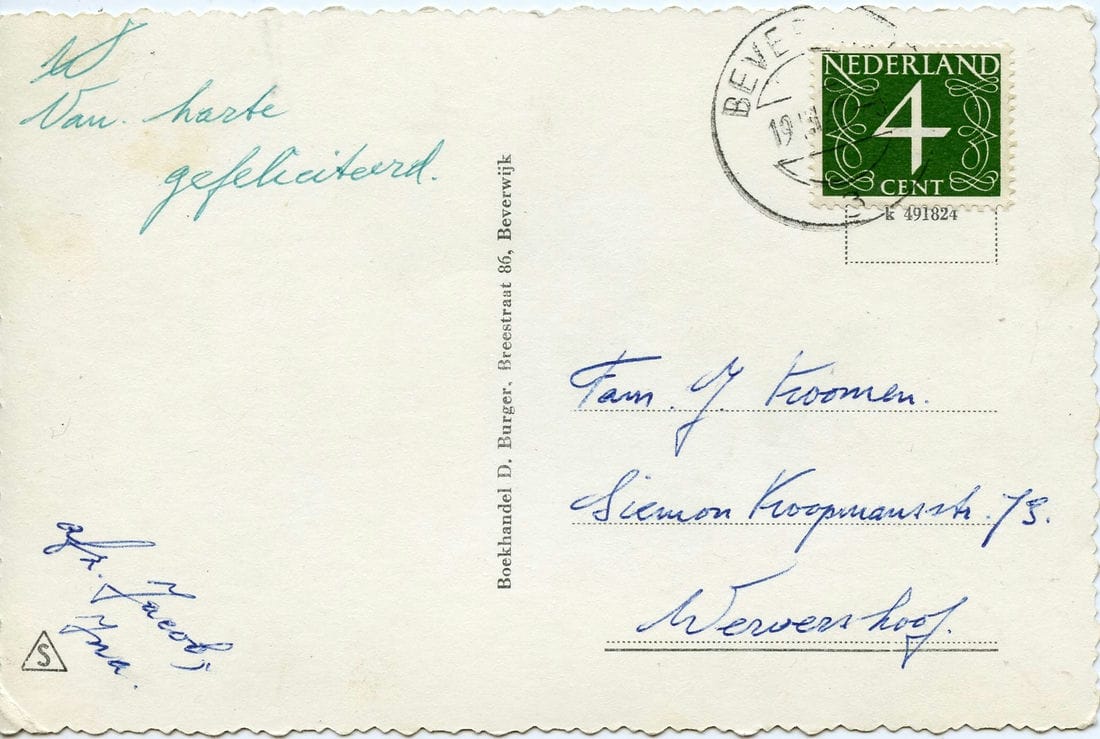 Van harte
gefeliciteerd.
afz. Jacob,
Ina.
S
Boekhandel D. Burger. Breestraat 86, Beverwijk
BEVE
19
3
NEDERLAND
4
CENT
k 491824
Fam. J. Koomen.
Siemon Koopmansstr. 73.
Wervershoof.